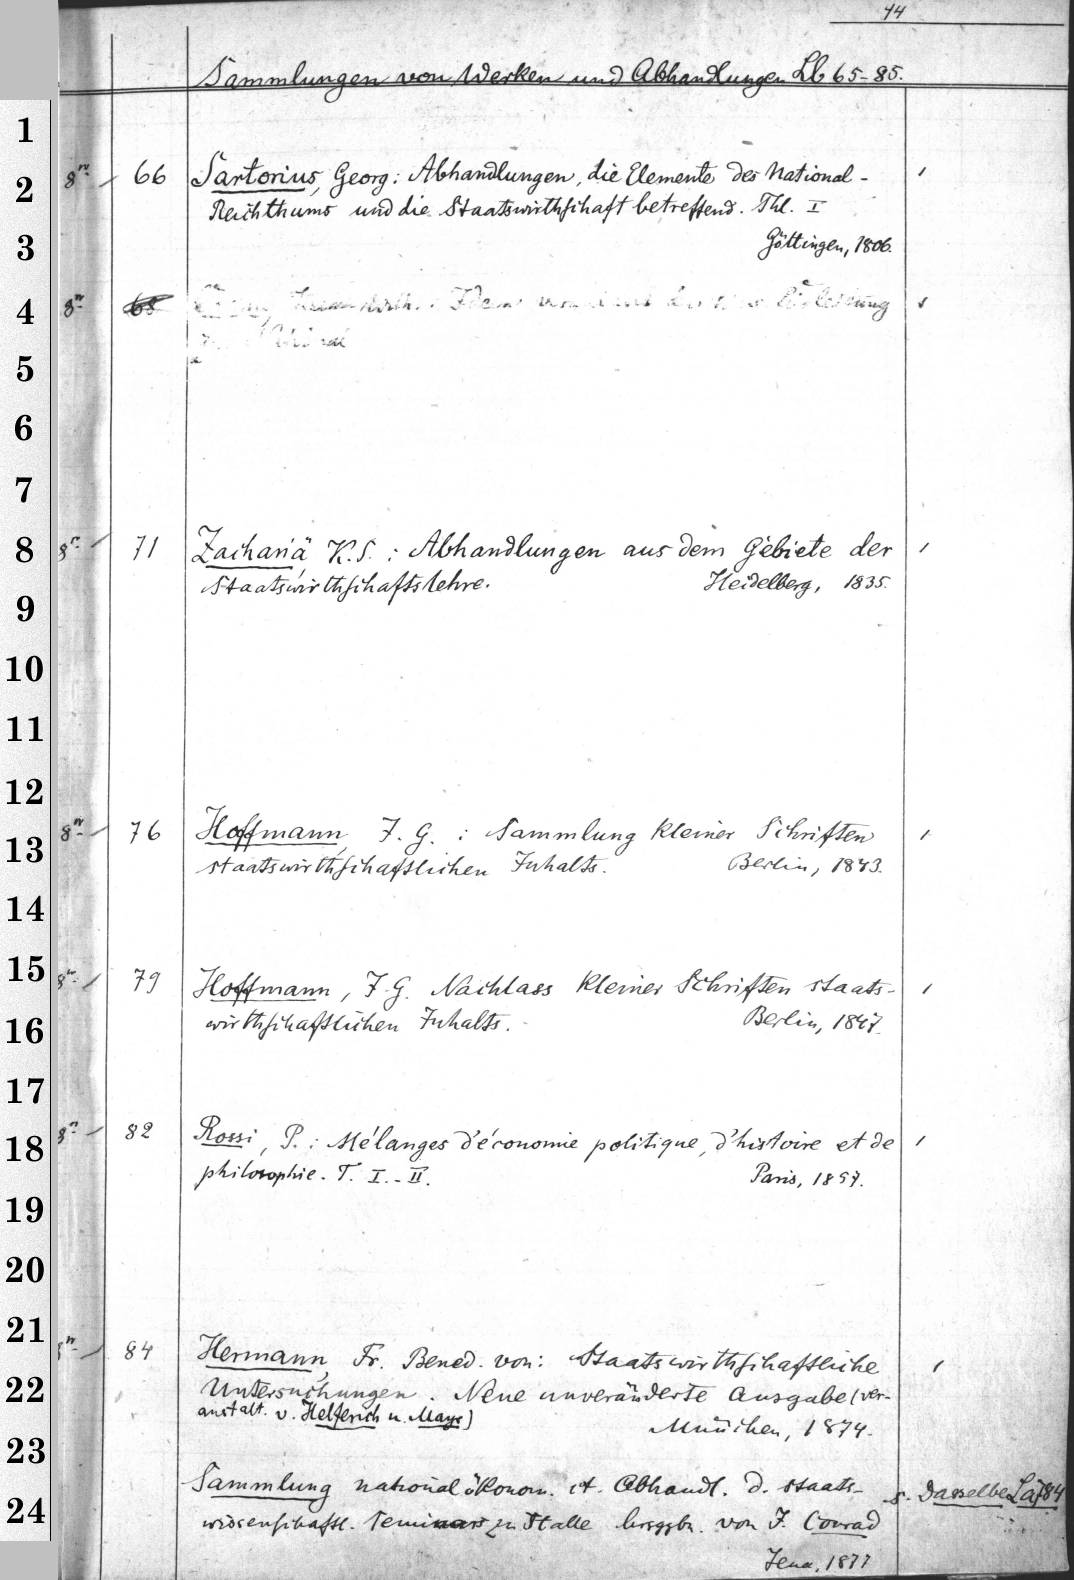 44
Sammlungen von Werken und Abhandlungen Lb 65-85.
1
8º 66 Sartorius, Georg: Abhandlungen, die Elemente des National-
2
Reichthums und die Staatswirthschaft betreffend. Thl. I
3
Göttingen, 1806.
4
8º 68
5
6
7
8
8º 71 Zachariä K. S.: Abhandlungen aus dem Gebiete der
9
Staatswirthschaftslehre. Heidelberg, 1835.
10
11
12
8º 76 Hoffmann, J. G.: Sammlung kleiner Schriften
13
staatswirthschaftlichen Inhalts. Berlin, 1843.
14
15
8º 79 Hoffmann, J. G. Nachlass kleiner Schriften staats-
16
wirthschaftlichen Inhalts. Berlin, 1847.
17
8º 82 Rossi, P.: Mélanges d'économie politique, d'histoire et de
18
philosophie. T. I.-II. Paris, 1857.
19
20
21
8º 84 Hermann, Fr. Bened. von: Staatswirthschaftliche
22
Untersuchungen. Neue unveränderte Ausgabe (ver-
anstalt. v. Helferich u. Mayr)
München, 1874.
23
Sammlung nationalökonom. u. Abhandl. d. staats- s. Dasselbe
24
wissenschaftl. Seminars zu Halle hrsggbn. von J. Conrad
Jena, 1877